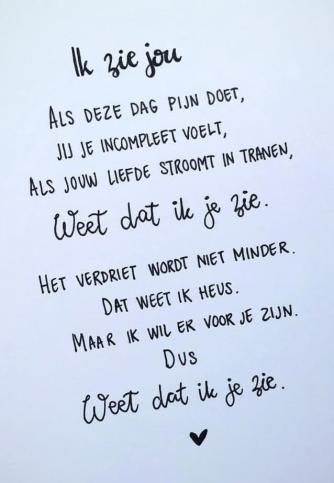 Ik zie jou
Als deze dag pijn doet,
jij je incompleet voelt,
Als jouw liefde stroomt in tranen,
Weet dat ik je zie.
Het verdriet wordt niet minder.
Dat weet ik heus.
Maar ik wil er voor je zijn.
Dus
Weet dat ik je zie.